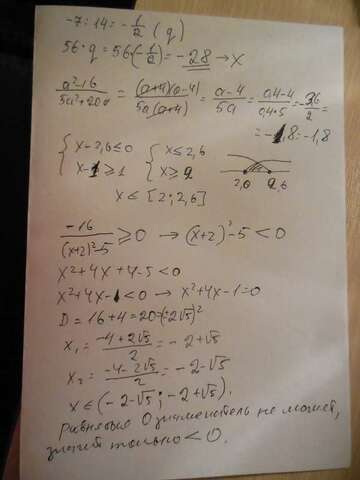 -7 : 14 = -1/2 (q)
56 · q = 56(-1/2) = -28 → x
a²-16/5a²+20a = (a+4)(a-4)/5a(a+4) = a-4/5a = a4-4/a4·5 = -36/2 =
= -1,8 = -1,8
{ x-2,6≤0 { x≤2,6
x-1≥1 x≥2
2,0 2,6
x ≤ [2; 2,6]
-16/(x+2)²-5 ≥ 0 → (x+2)²-5 < 0
x²+4x+4-5<0
x²+4x-1<0 → x²+4x-1=0
D = 16+4=20=(2√5)²
x₁ = -4+2√5/2 = -2+√5
x₂ = -4-2√5/2 = -2-√5
x ∈ (-2-√5; -2+√5).
равняться 0 знаменатель не может,
значит только < 0.